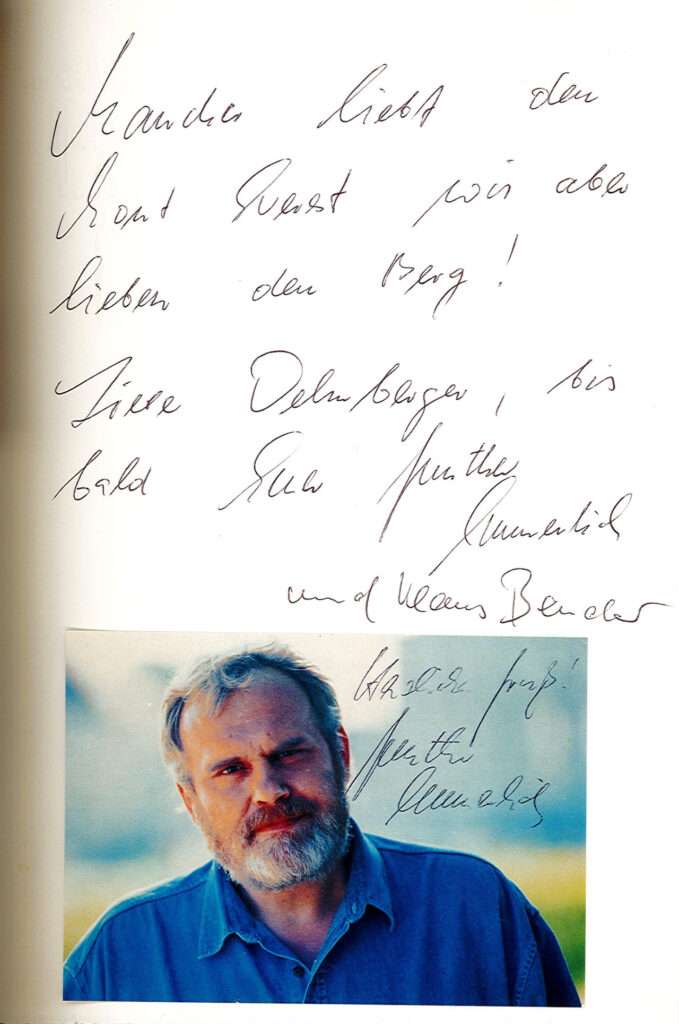 Mancher liebt den
Mont Everest wir aber
lieben den Berg!
Liebe Dehnberger, bis
bald Euer Gunther
Emmerlich
und Klaus Bender
Herzliche Grüße!
Gunther
Emmerlich